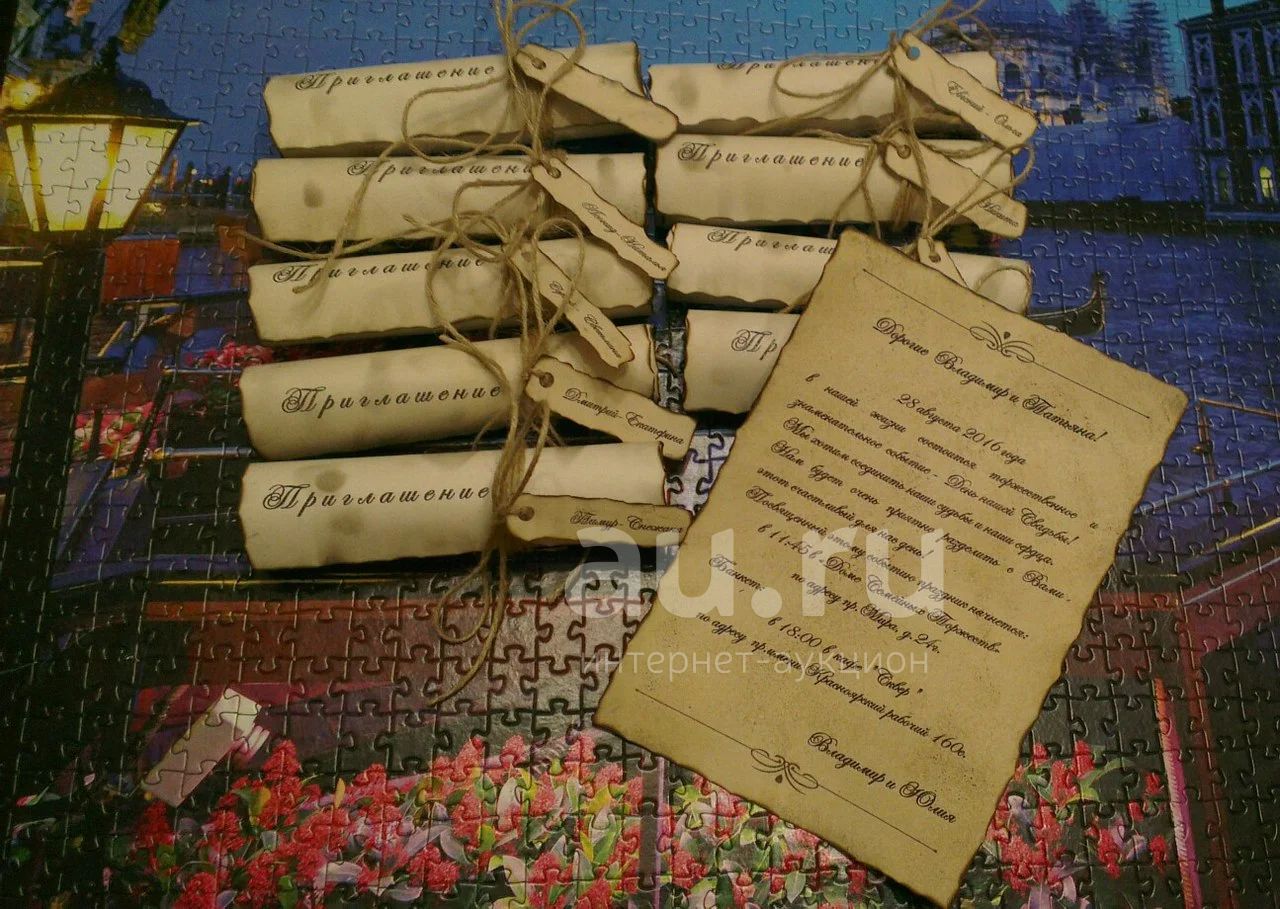 Приглашение
Приглашение
Евгений - Ольга
Приглашение
Приглашение
Приглашение
Приглашение
Приглашение
Приглашение
Дмитрий-Екатерина
Приглашение
Тимур-Снежана
Дорогие Владимир и Татьяна!
28 августа 2016 года
в нашей жизни состоится торжественное и
знаменательное событие - День нашей Свадьбы!
Мы хотим соединить наши судьбы и наши сердца.
Нам будет очень приятно разделить с Вами
этот счастливый для нас день.
Посвященный этому событию праздник начнется:
в 11:45 в "Доме Семейных Торжеств"
по адресу пр. Мира, д. 24г.
Банкет:
в 18:00 в кафе "Сквер"
по адресу пр.имени Красноярский рабочий 160с.
Владимир и Юлия
au.ru
интернет-аукцион